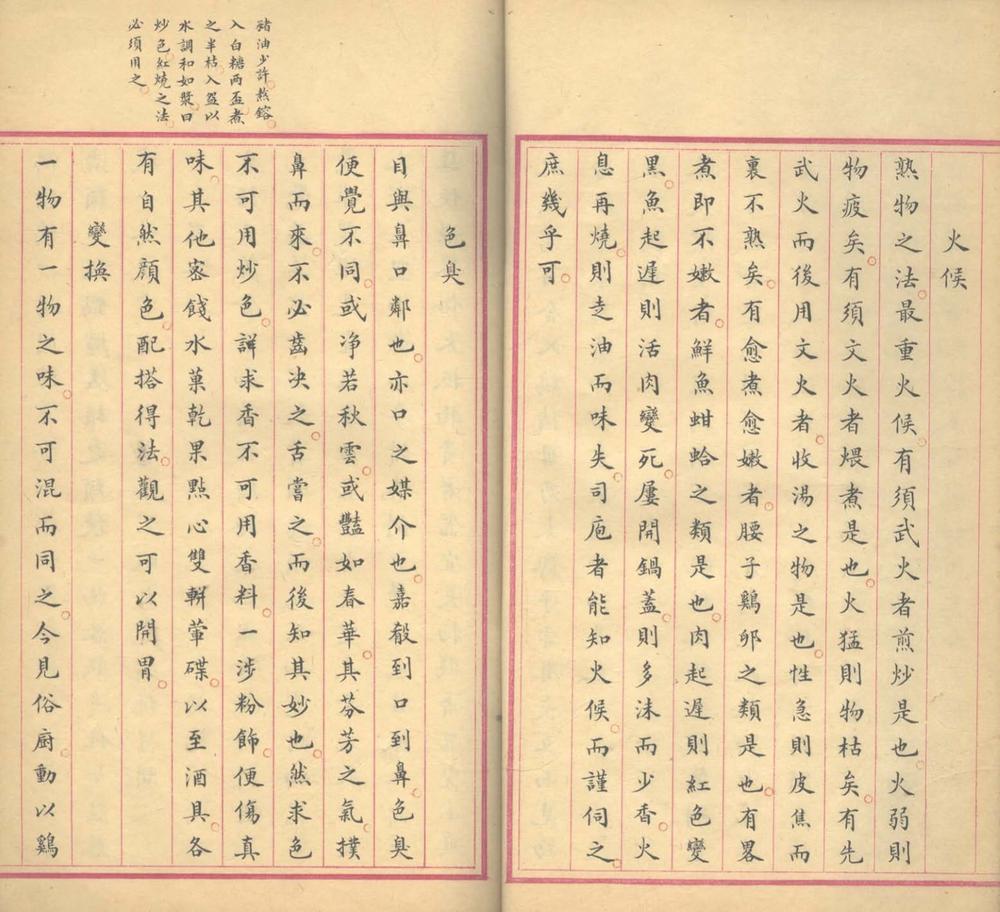 火候
熟物之法最重火候有須武火者煎炒是也火弱則
物疲矣有須文火者煨煮是也火猛則物枯矣有先
武火而後用文火者收湯之物是也性急則皮焦而
裏不熟矣有愈煮愈嫩者腰子鷄卵之類是也有畧
煮即不嫩者鮮魚蚶蛤之類是也肉起遲則紅色變
黑魚起遲則活肉變死屢開鍋蓋則多沫而少香火
息再燒則走油而味失司庖者能知火候而謹伺之
庶幾乎可
猪油少許熬鎔
入白糖兩盃煮
之半枯入盌以
水調和如漿曰
炒色紅燒之法
必須用之
色臭
目與鼻口鄰也亦口之媒介也嘉殽到口到鼻色臭
便覺不同或净若秋雲或豔如春華其芬芳之氣撲
鼻而來不必齒决之舌嘗之而後知其妙也然求色
不可用炒色詳求香不可用香料一涉粉飾便傷真
味其他密餞水菓乾果點心雙輧葷碟以至酒具各
有自然顏色配搭得法觀之可以開胃
變換
一物有一物之味不可混而同之今見俗廚動以鷄